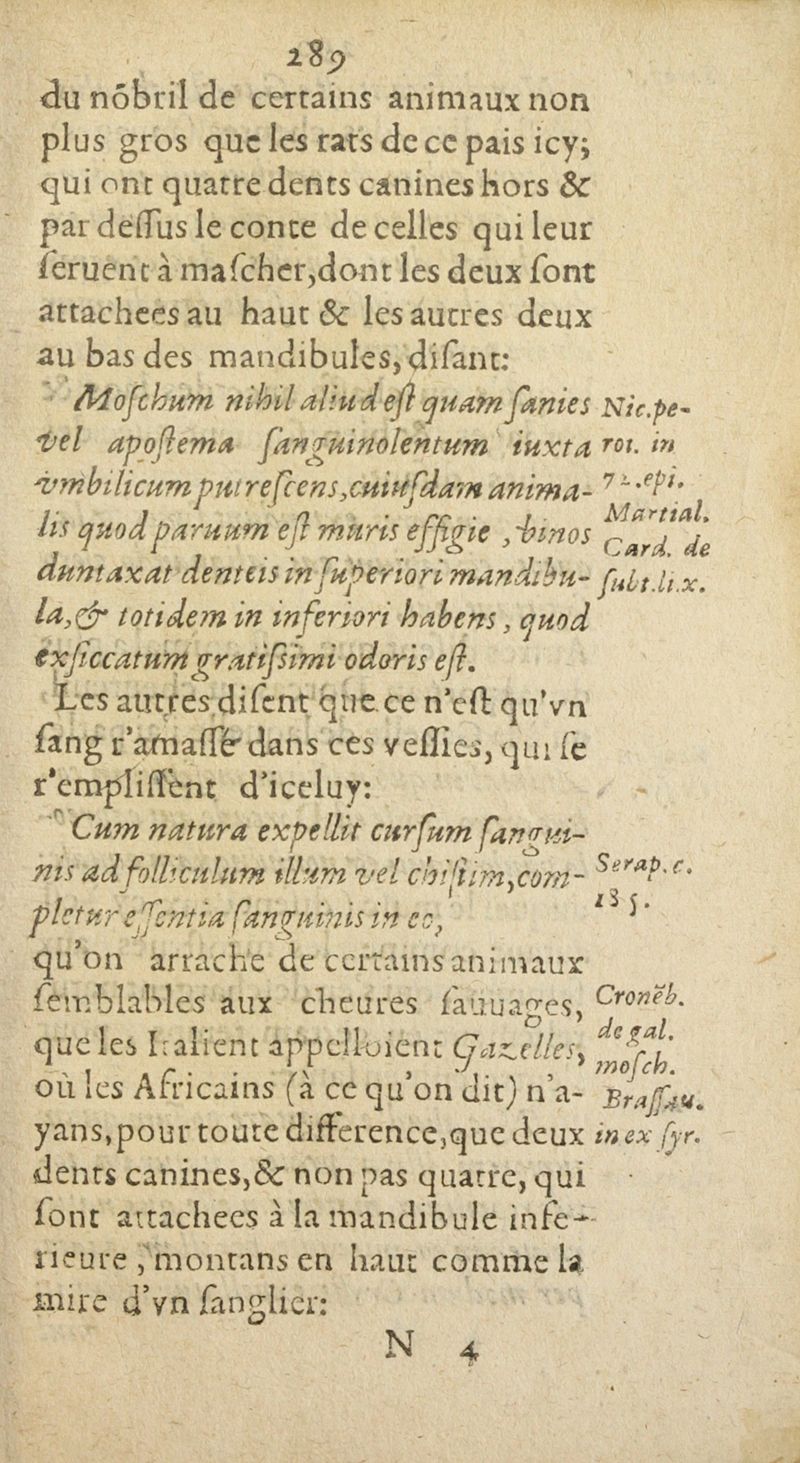 289
du nõbril de certains animaux non
plus gros que les rats de ce pais icy;
qui ont quatre dents canines hors &
par deſſus le conte de celles qui leur
ſeruent à maſcher, dont les deux ſont
attachees au haut & les autres deux
au bas des mandibules, diſant:
Moſchum nihil aliud eſt quam ſanies
vel apoſtema ſanguinolentum iuxta
vmbilicum putreſcens, cuiuſdam anima-
lis quod paruum eſt muris effigie, binos
duntaxat denteis in ſuperiori mandibu-
la, & totidem in inferiori habens, quod
exſiccatum gratiſsimi odoris eſt.
Nic. pe-
rot. in
72. epi.
Martial.
Card. de
ſubt. li. x.
Les autres diſent que ce n'eſt qu'vn
ſang r'amaſſé dans ces veſſies, qui ſe
r'empliſſent d'iceluy:
Cum natura expellit curſum ſangui-
nis ad folliculum illum vel chiſtim, com-
pletur eſſentia ſanguinis in eo,
Serap. c.
185.
qu'on arrache de certains animaux
ſemblables aux cheures ſauuages,
que les Italient appelloient Gazelles,
où les Africains (à ce qu'on dit) n'a-
yans, pour toute difference, que deux
dents canines, & non pas quatre, qui
ſont attachees à la mandibule infe-
rieure, montans en haut comme la
mire d'vn ſanglier:
Cronẽb.
de gal.
moſch.
Braſſau.
in ex ſyr.
N 4